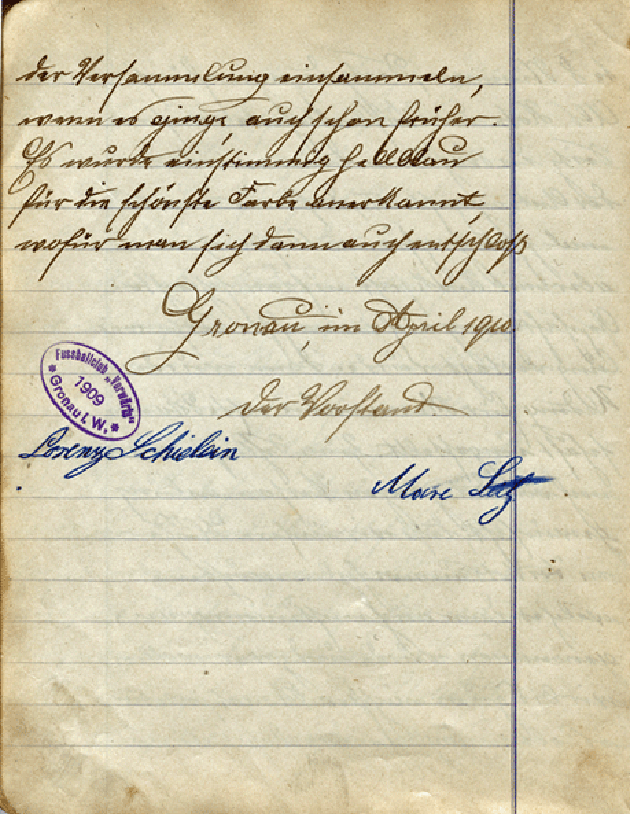 der Versammlung einsammeln,
wenn es ginge, auch schon früher.
Es wurde einstimmig hellblau
für die schönste Farbe anerkannt,
wofür man sich dann auch entschloß
Gronau, im April 1910
Fussballclub „Vorwärts“
1909
* Gronau i. W. *
Der Vorstand.
Lorenz Schielein
Marc